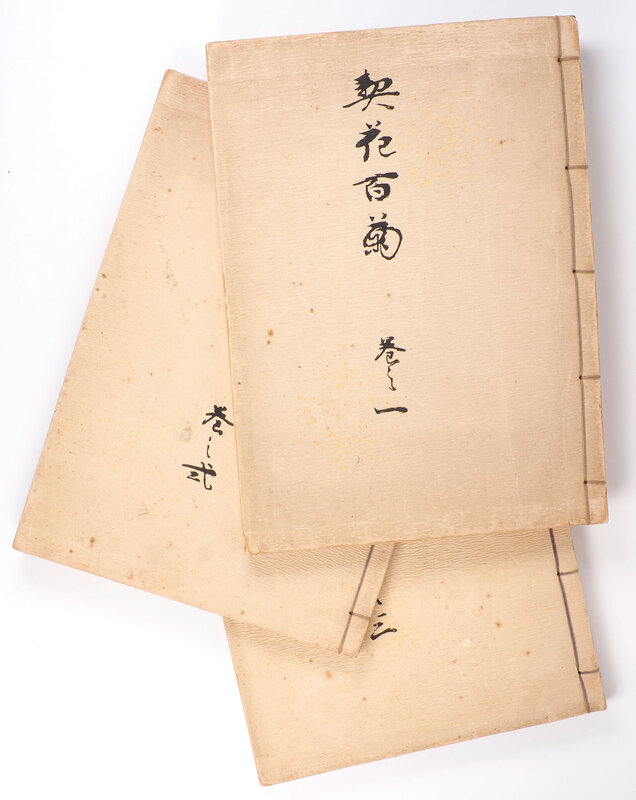 契花百菊
巻之一
巻之弐
三